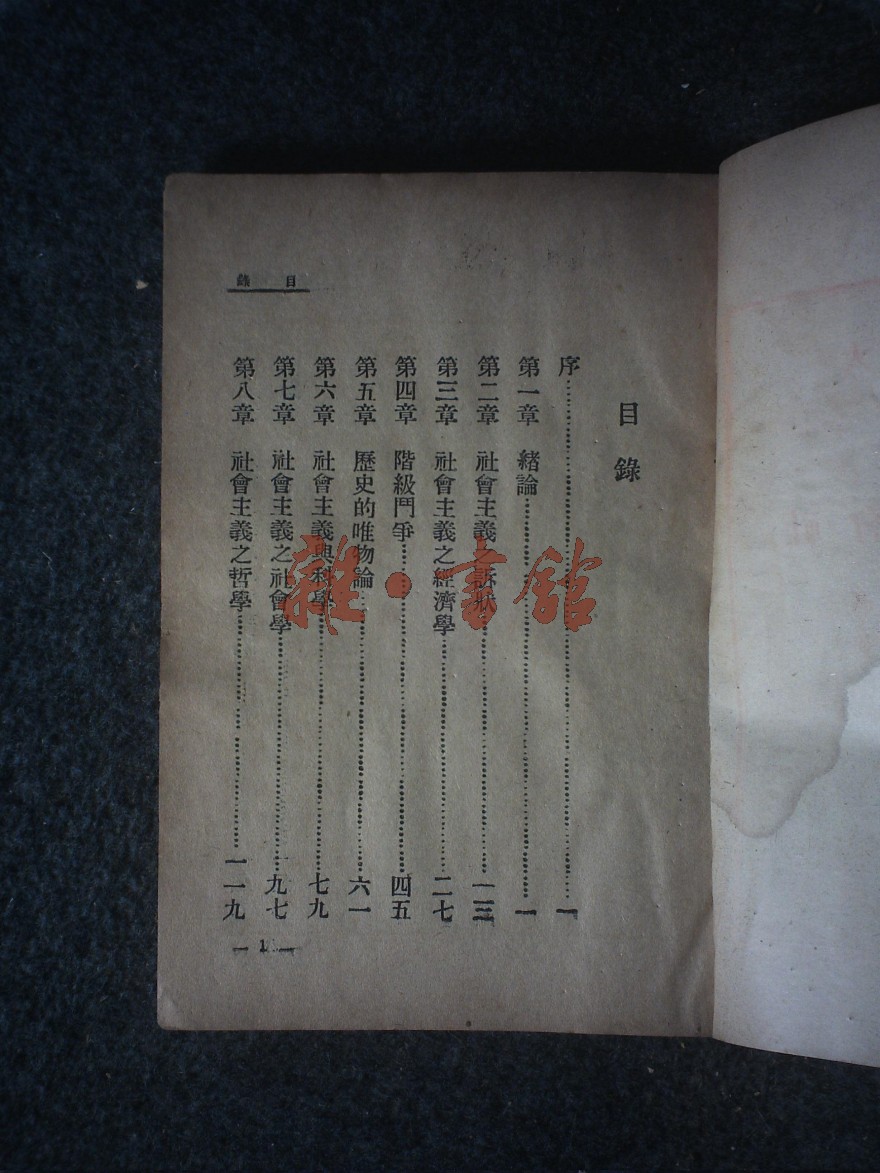 目錄
序……一
第一章 緒論……一
第二章 社會主義之訴狀……一三
第三章 社會主義之經濟學……二七
第四章 階級鬥爭……四五
第五章 歷史的唯物論……六一
第六章 社會主義與科學……七九
第七章 社會主義之社會學……九七
第八章 社會主義之哲學……一一九
目錄
— 1 —
雜·書館